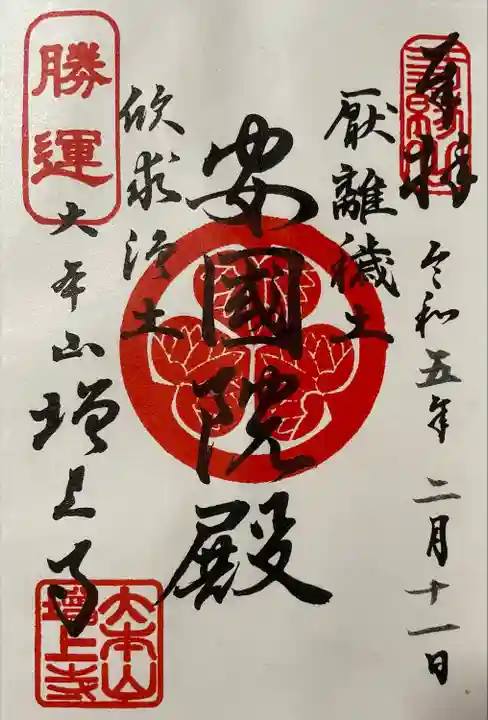 奉拝
令和五年二月十一日
厭離穢土
安國院殿
欣求浄土
勝運
大本山増上寺
大本山
増上寺